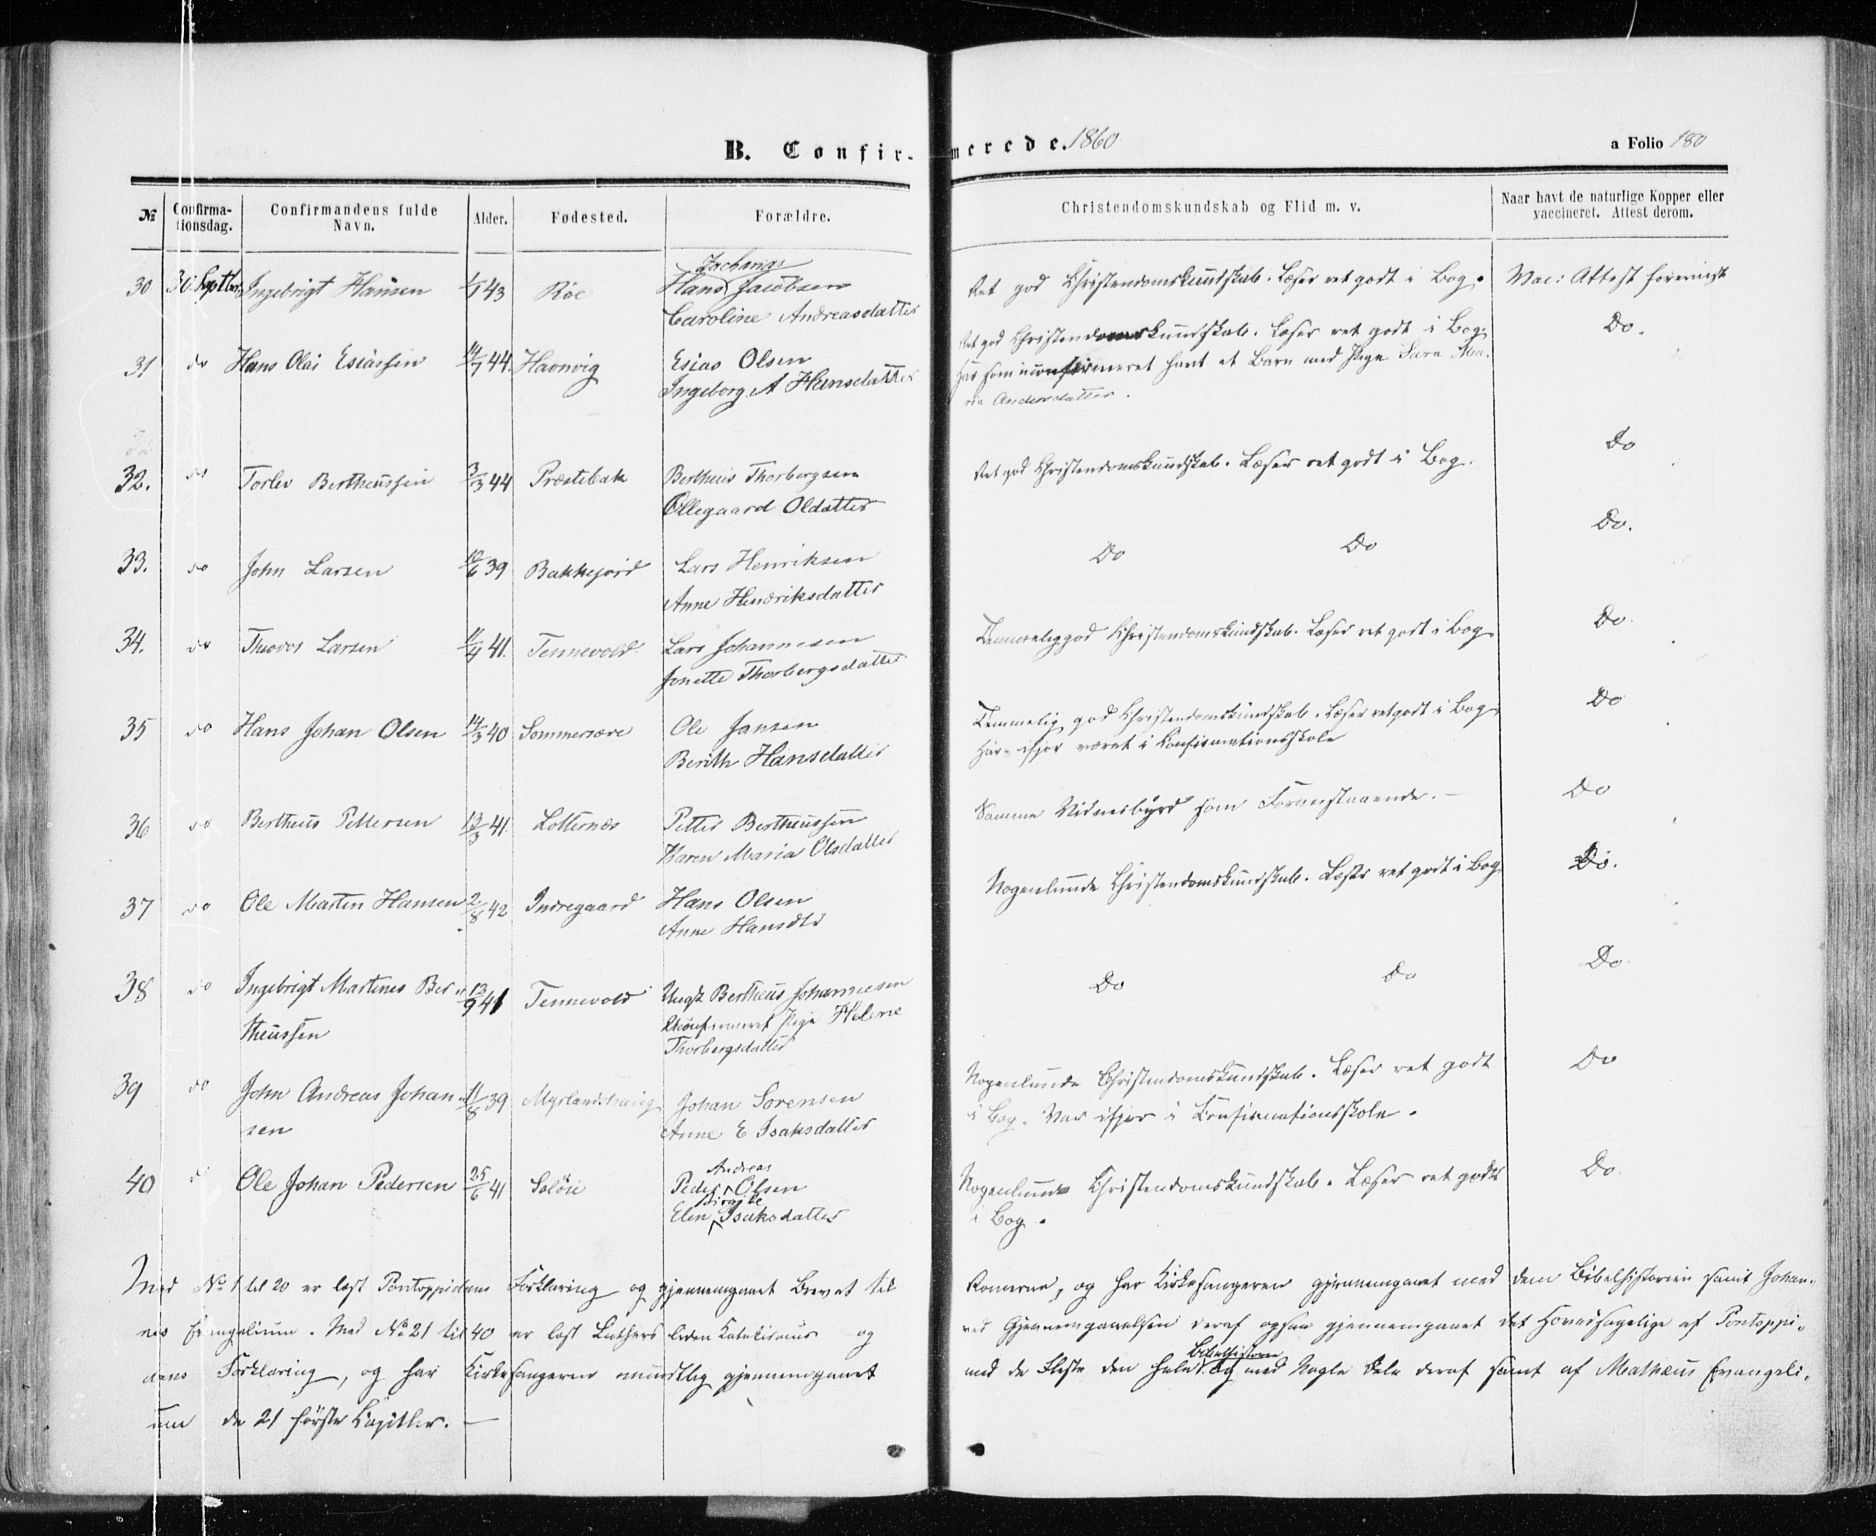 B. Confirmerede. 1860
a Folio 180
№ Confirmationsdag. Confirmandens fulde Navn. Alder. Fødested. Forældre. Christendomskundskab og Flid m. v. Naar havt de naturlige Kopper eller vaccineret. Attest derom.
30 30 Septbr Ingebrigt Hansen 43 Röe Hans Zacharias Jacobsen Ret god Christendomskundskab. Læser ret godt i Bog. Vac: Attest foreviist
Caroline Andreasdatter
31 do Hans Olai Esiassen 14/7 44. Havnvig Esias Olsen Ret god Christendomskundskab. Læser ret godt i Bog. Do.
Ingeborg A Hansdatter Har som uconfirmeret havt et Barn med Pige Sara Ma-
ria Andersdatter.
32. do Torlev Bertheussen 3/3 44 Præstebak Bertheus Thorbergsen Ret god Christendomskundskab. Læser ret godt i Bog. Do
Ollegaard Oldatter
33. do John Larsen 10/6 39 Bakkejord Lars Henriksen Do Do Do.
Anne Hendriksdatter
34. do Theodor Larsen 41. Tennevold Lars Johannesen Temmelig god Christendomskundskab. Læser ret godt i Bog. Do
Jonette Thorbergsdatter
35 do Hans Johan Olsen 14/3 40 Sommersæve Ole Jansen Temmelig god Christendomskundskab. Læser ret godt i Bog. Do
Berith Hansdatter Har ifjor været i Confirmationsskole
36 do Bertheus Pettersen 13/3 41. Lotternæs Petter Bertheussen Samme Vidnesbyrd som Foranstaaende. — Do
Karen Maria Olsdatter
37 do Ole Martin Hansen 2/8 42 Indregaard Hans Olsen Nogenlunde Christendomskundskab. Læser ret godt i Bog. Do.
Anne Hansdtr
38 do Ingebrigt Martines Ber- 13/9 41 Tennevold Ungk Bertheus Johannesen Do Do Do
theussen Ukonfirmeret Pige Helene
Thorbergsdatter
39 do John Andreas Johan- 11/8 39 Myrlandshaug Johan Sörensen Nogenlunde Christendomskundskab. Læser ret godt Do
sen Anne E Isaksdatter i Bog. Var ifjor i Confirmationsskole.
40 do Ole Johan Pedersen 25/6 41 Solöi Peder Andreas Olsen Nogenlunde Christendomskundskab. Læser ret godt Do.
Elen Birgitte Isaksdatter i Bog.
Med No 1 til 20 er læst Pontoppidans Forklaring og gjennemgaaet Brevet til Romerne, og har Kirkesangeren gjennemgaaet med dem Bibelhistorien samt Johan-
nes Evangelium. Med No 21 til 40 er læst Luthers liden Katekismus og ved Gjennemgaaelsen deraf ogsaa gjennemgaaet det Hovedsagelige af Pontoppi-
dans Forklaring, og har Kirkesangeren mundtlig gjennemgaaet med de Fleste den hele Bibelhistorie og med Nogle Dele deraf samt af Mathæus Evangeli-
um de 21 første Kapitler. —